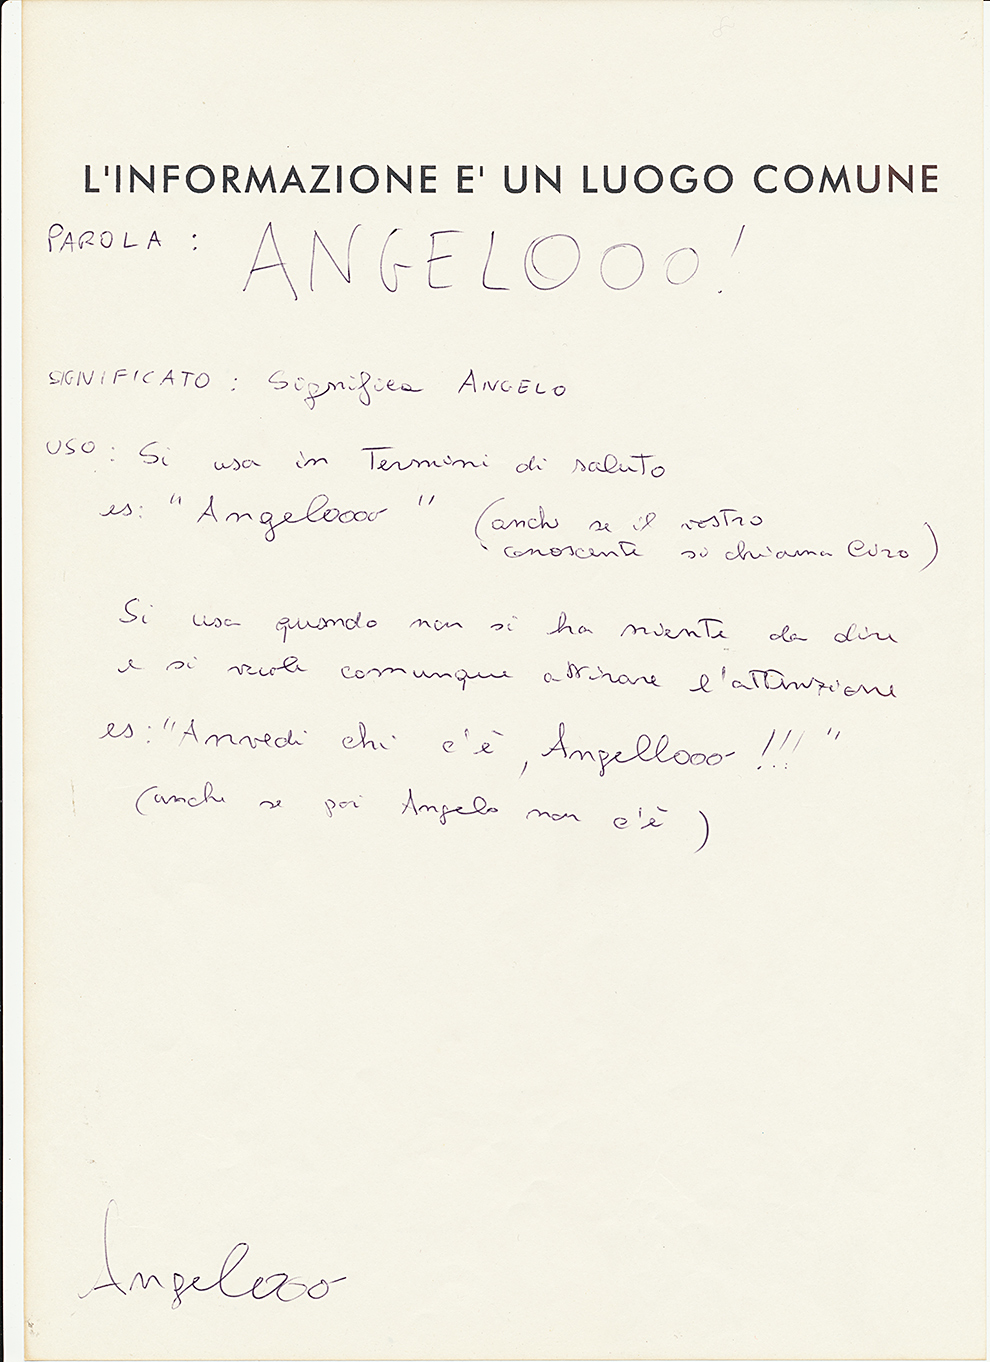 L'INFORMAZIONE E' UN LUOGO COMUNE
PAROLA : ANGELOOO!
SIGNIFICATO : Significa ANGELO
USO : Si usa in Termini di saluto
es: "Angeloooo" (anche se il vostro
conoscente si chiama Ciro)
Si usa quando non si ha niente da dire
e si vuole comunque attirare l'attenzione
es: "Anvedi chi c'è, Angellooo!!!"
(anche se poi Angelo non c'è)
Angelooo